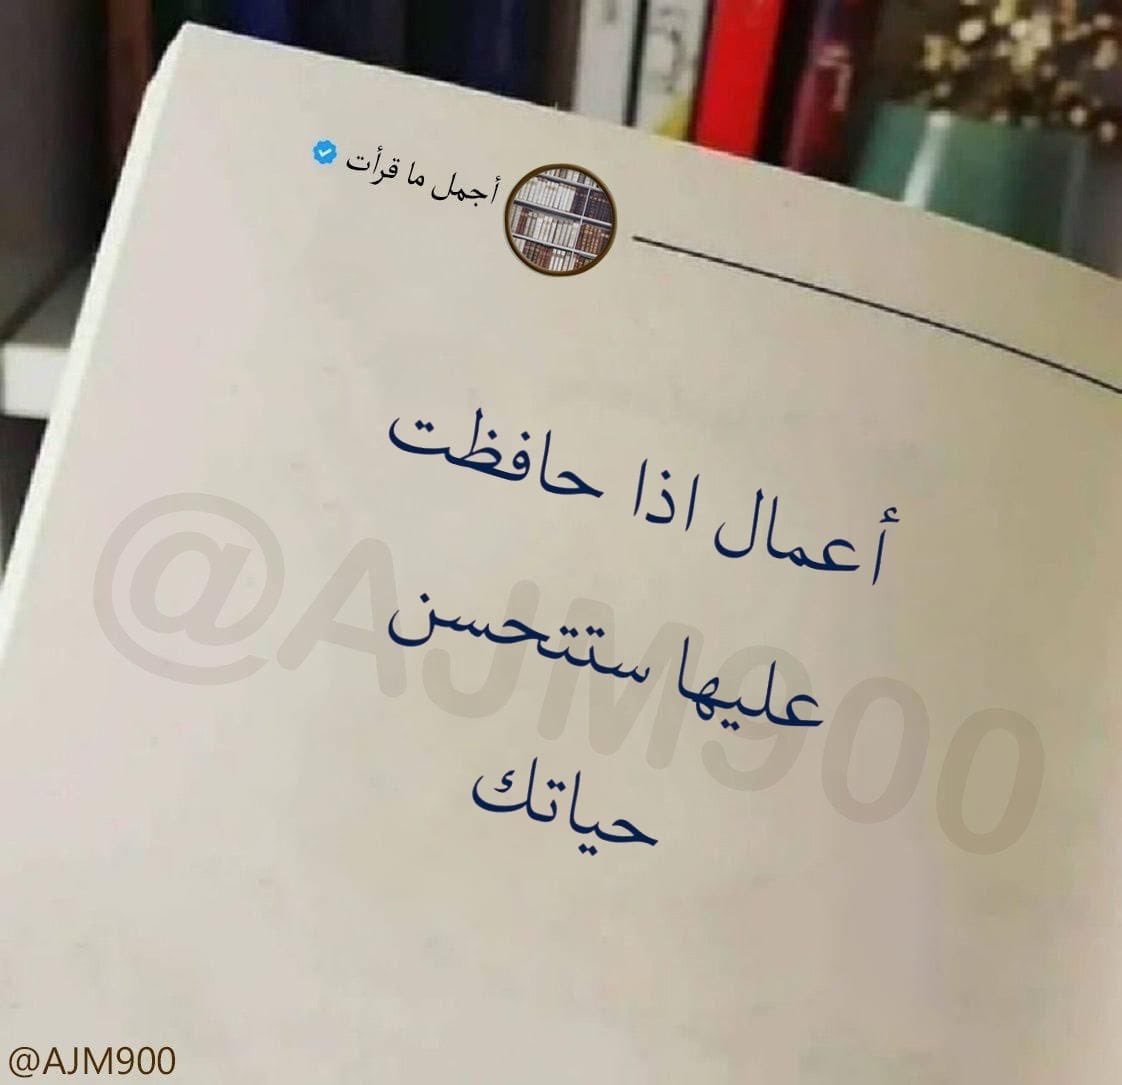 أجمل ما قرأت
أعمال اذا حافظت
عليها ستتحسن
حياتك
@AJM900
@AJM900